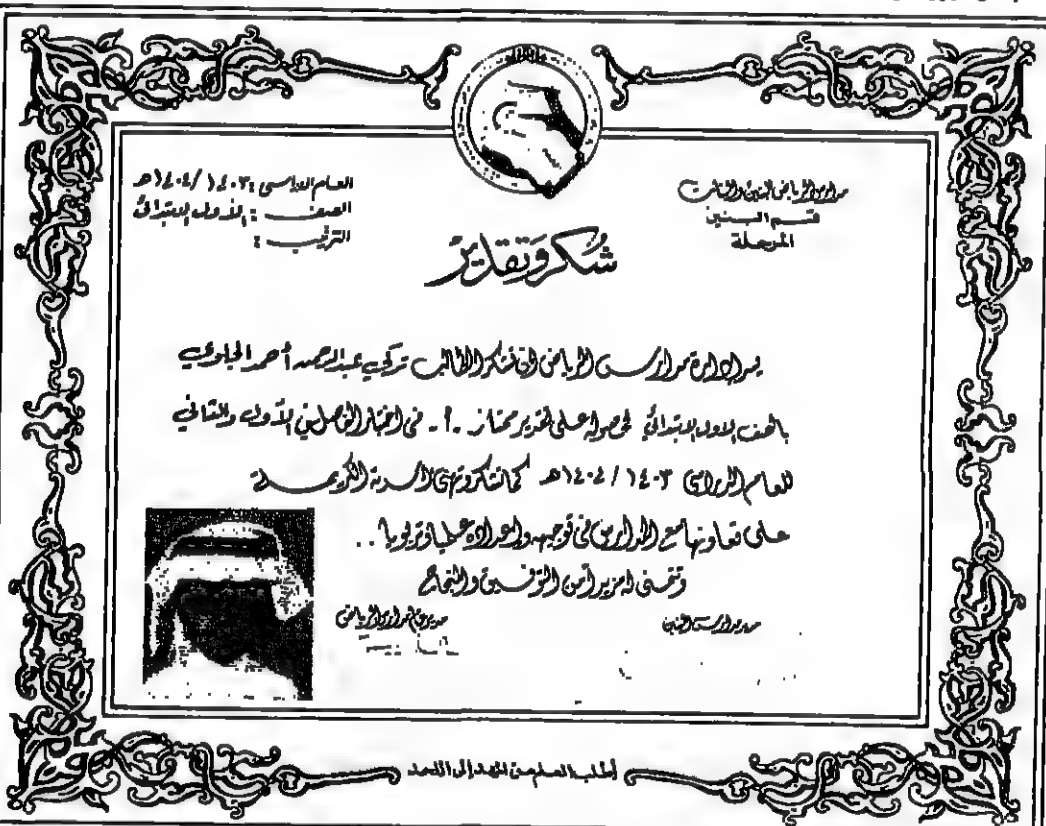 مدارس الرياض للبنين والبنات
قسم البنين
المرحلة
العام الدراسي : ١٤٠٣ / ١٤٠٤هـ
الصف : الأول الابتدائي
الترتيب :
شكر وتقدير
يسر إدارة مدارس الرياض أن تشكر الطالب تركي عبدالرحمن أحمد الجلوي
بالصف الأول الابتدائي لحصوله على تقدير ممتاز - أ - في اختبار الفصلين الأول والثاني
للعام الدراسي ١٤٠٣ / ١٤٠٤هـ كما تشكر وتهنئ أسرته الكريمة
على تعاونها مع المدارس في توجيهه وإعداده علميا وتربويا ..
وتتمنى له مزيدا من التوفيق والنجاح
مدير مدارس البنين
مدير عام مدارس الرياض
أطلب العلم من المهد إلى اللحد